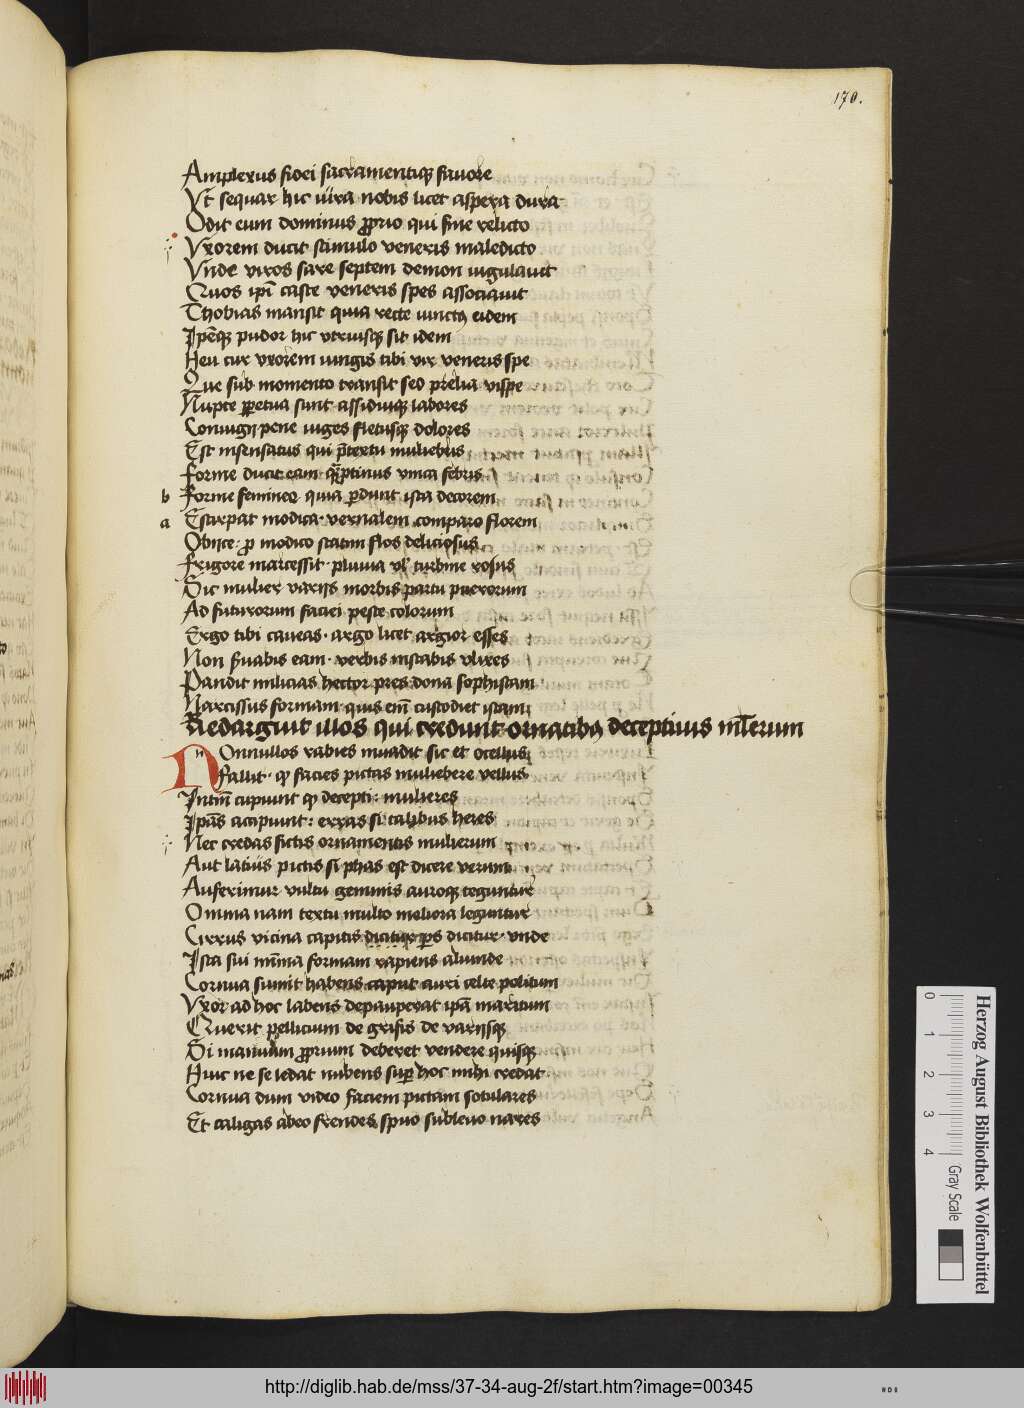 170.
Amplexus fidei sacramentiq3 fauore
Vt sequar hic iura nobis licet aspera dura
Odit eum dominus prprio qui sine relicto
Vxorem ducit stimulo veneris maledicto
Vnde viros sare septem demon iugulauit
Quos ipi caste veneris spes associauit
Thobias mansit quia recte iunctus eidem
Ipeq3 pudor hic vtriusq3 sit idem
Heu cur vxorem iungis tibi vir veneris spe
Que sub momento transit sed prelia vispe
Nupte ppetua sunt assiduiq3 labores
Coniugij pene iuges fletusq3 dolores
Est insensatus qui ptextu muliebris
Forme ducit eam qptinus vnica febris
b Forme feminee quia pdunt ista decorem
a Estirpat modica vernalem comparo florem
Obijce pro modico statim flos deliciosus
Frigore marcessit pluuia vl turbine rosus
Sic mulier varijs morbis partu puerorum
Ad futurorum faciei peste colorum
Ergo tibi caueas argo licet argior esses
Non suabis eam verbis instabis vlixes
Pandit milicias hector pres dona sophistam
Narcissus formam quis em custodiet istam
Redarguit illos qui credunt ornatibus deceptiuis mlierum
Nonnullos rabies inuadit sic et ocellus
Fallit q facies pictas muliebere vellus
Intm cupiunt q decepti mulieres
Ipas accipiunt erras si talibus heres
Nec credas fictis ornamentis mulierum
Aut latuis pictis si phas est dicere verum
Auferimur vultu gemmis auroq3 teguntur
Omnia nam textu multo meliora leguntur
Cirrus vicina capitis dicitur ps dicitur vnde
Ista sui mima formam rapiens aliunde
Cornua sumit habens caput auri celte politum
Vxor ad hoc labens depauperat ipa maritum
Querit pellicium de grisis de varijsq3
Si manuum prprium deberet vendere quisq3
Huic ne se ledat nubens super hoc mihi credat
Cornua dum video faciem pictam sotulares
Et caligas abeo frendes spuo subleuo nares
Herzog August Bibliothek Wolfenbüttel
0 1 2 3 4
Gray Scale
http://diglib.hab.de/mss/37-34-aug-2f/start.htm?image=00345